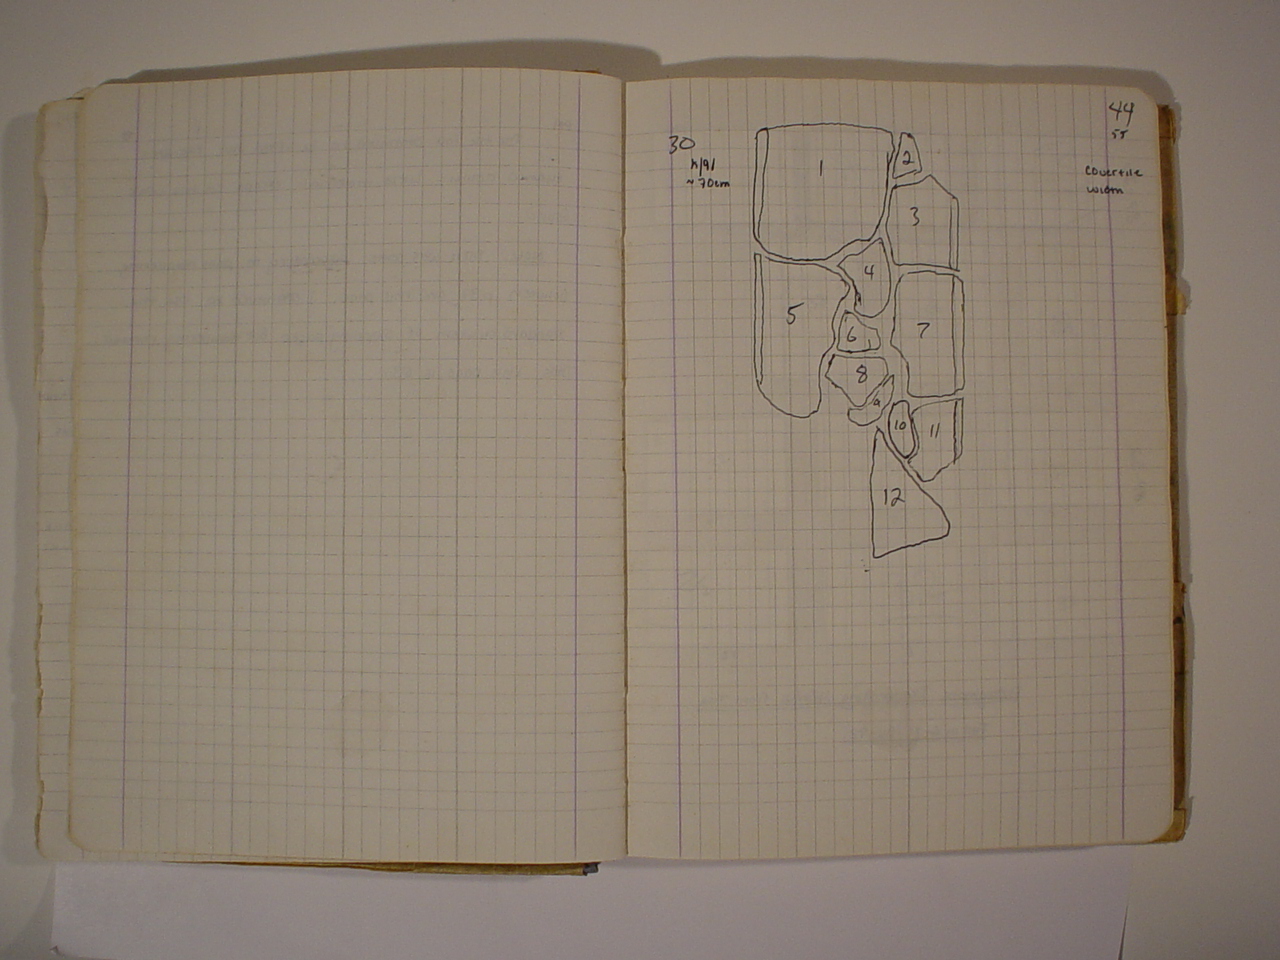 44
55
30
h/9/
~70cm
covertile
width
1
2
3
4
5
6
7
8
9
10
11
12